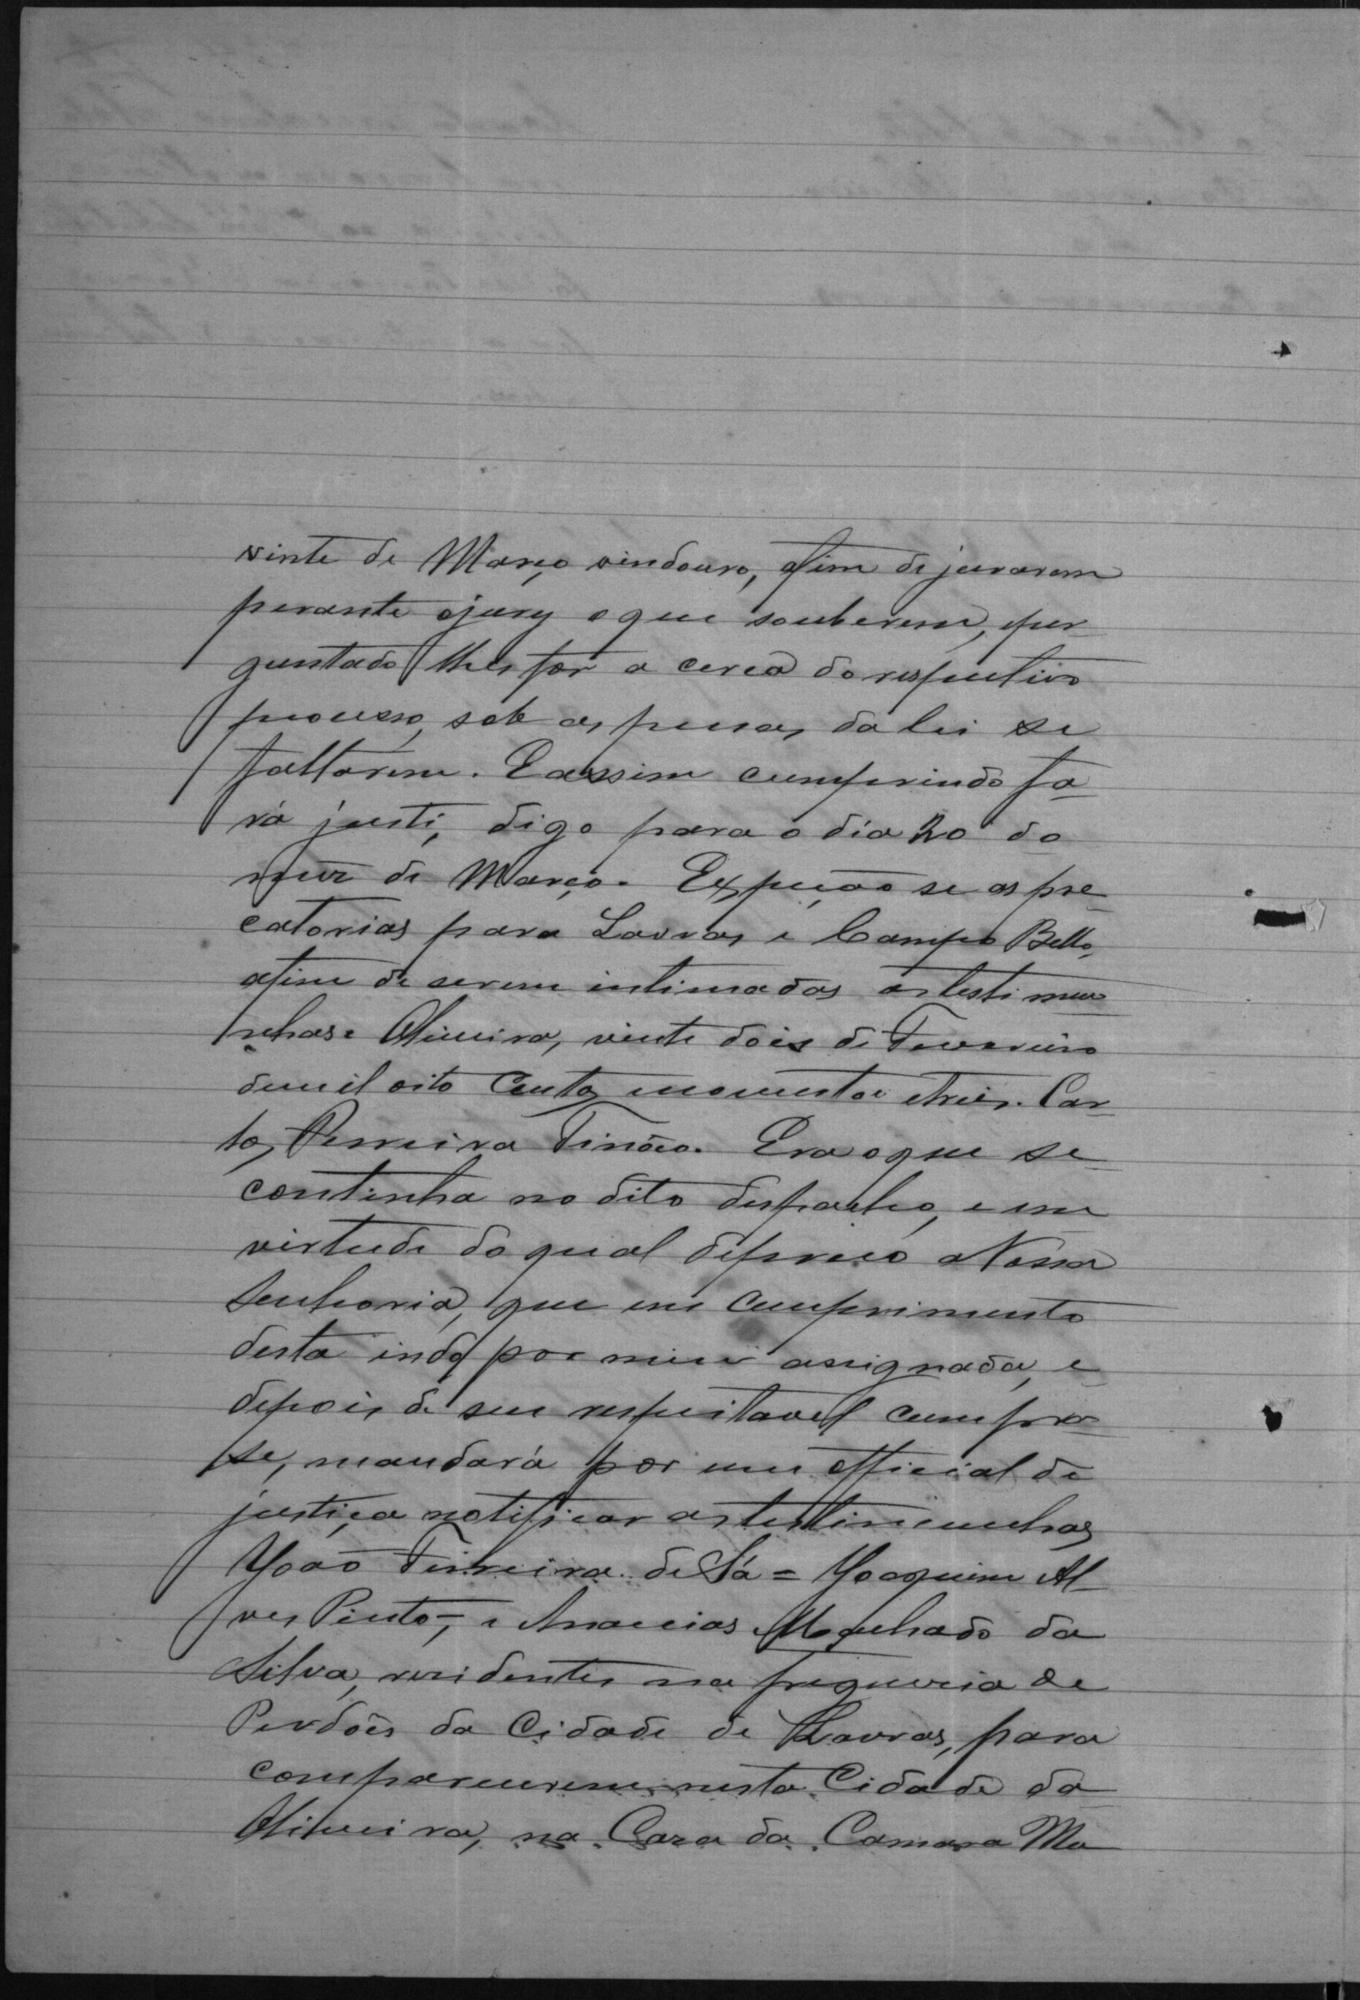 vinte de Março vindouro, afim de jurarem
perante o jury o que souberem, e per-
guntado lhes for a cerca do respectivo
processo, sob as penas da lei se
faltarem. E assim cumprindo fa-
rá justi, digo para o dia 20 do
mez de Março. Expeção se as pre-
catorias para Lavras e Campo Bello,
afim de serem intimadas as testimu-
nhas. Oliveira, vinte dois de Fevereiro
de mil oito centos noventa e treis. Car-
los Ferreira Tinôco. Era o que se
continha no dito despacho, e em
virtude do qual depreco a Vossa
Senhoria, que em cumprimento
desta indo por mim assignada, e
depois de seu respeitavel cumpra-
se, mandará por um official de
justiça notificar as testimunhas
João Ferreira de Sá = Joaquim Al-
ves Pinto =, e Ananias Machado da
Silva, residentes na freguesia de
Perdões da Cidade de Lavras, para
comparecerem nesta Cidade da
Oliveira, na Caza da Camara Mu